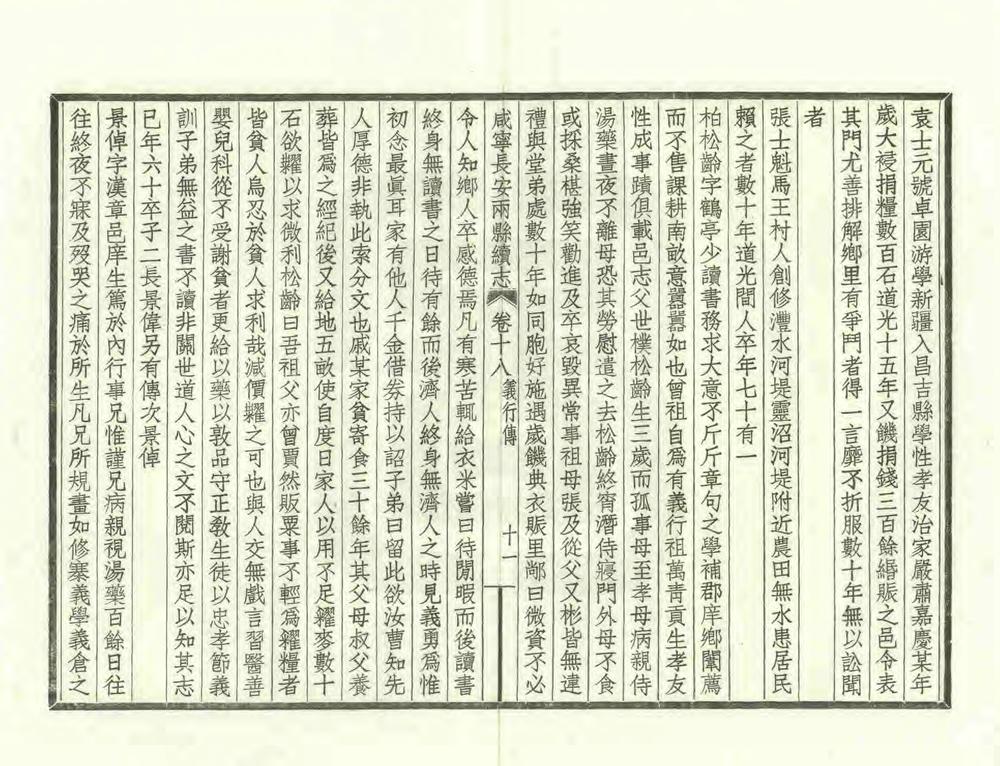 袁士元號卓園游學新疆入昌吉縣學性孝友治家嚴肅嘉慶某年
歲大祲捐糧數百石道光十五年又饑捐錢三百餘緡賑之邑令表
其門尤善排解鄉里有爭鬥者得一言靡不折服數十年無以訟聞
者
張士魁馬王村人創修灃水河堤靈沼河堤附近農田無水患居民
賴之者數十年道光間人卒年七十有一
柏松齡字鶴亭少讀書務求大意不斤斤章句之學補郡庠鄉闈薦
而不售課耕南畝意囂囂如也曾祖自爲有義行祖萬青貢生孝友
性成事蹟俱載邑志父世樸松齡生三歲而孤事母至孝母病親侍
湯藥晝夜不離母恐其勞慰遣之去松齡終宵潛侍寢門外母不食
或採桑椹強笑勸進及卒哀毀異常事祖母張及從父又彬皆無違
禮與堂弟處數十年如同胞好施遇歲饑典衣賑里鄰曰微資不必
咸寧長安兩縣續志 卷十八 義行傳 十一
令人知鄉人卒感德焉凡有寒苦輒給衣米嘗曰待閒暇而後讀書
終身無讀書之日待有餘而後濟人終身無濟人之時見義勇爲惟
初念最眞耳家有他人千金借劵持以詔子弟曰留此欲汝曹知先
人厚德非執此索分文也戚某家貧寄食三十餘年其父母叔父養
葬皆爲之經紀後又給地五畝使自度日家人以用不足糴麥數十
石欲糶以求微利松齡曰吾祖父亦曾賈然販粟事不輕爲糴糧者
皆貧人烏忍於貧人求利哉減價糶之可也與人交無戲言習醫善
嬰兒科從不受謝貧者更給以藥以敦品守正敎生徒以忠孝節義
訓子弟無益之書不讀非關世道人心之文不閱斯亦足以知其志
已年六十卒子二長景偉另有傳次景倬
景倬字漢章邑庠生篤於內行事兄惟謹兄病親視湯藥百餘日往
往終夜不寐及歿哭之痛於所生凡兄所規畫如修寨義學義倉之